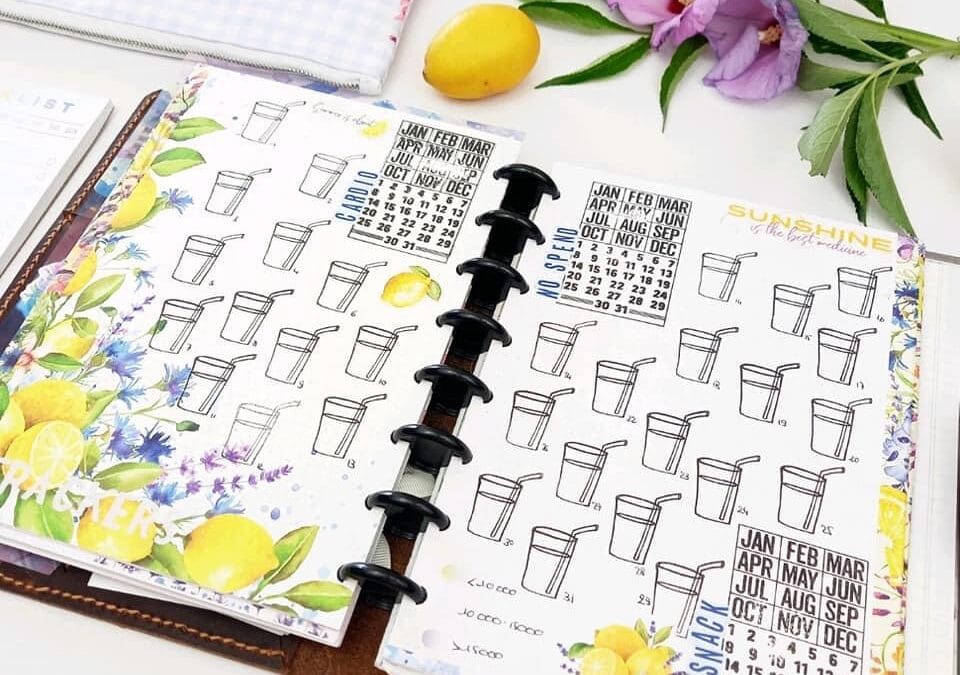 LIST
CARDIO
JAN FEB MAR
APR MAY JUN
JUL AUG SEP
OCT NOV DEC
1 2 3 4 5 6 7
8 9 10 11 12 13
14 15 16 17 18 19
20 21 22 23 24
25 26 27 28 29
30 31
1
2
3
4
5
6
7
8
9
10
11
12
13
TRACKERS
NO SPEND
JAN FEB MAR
APR MAY JUN
JUL AUG SEP
OCT NOV DEC
1 2 3 4 5 6 7
8 9 10 11 12 13
14 15 16 17 18 19
20 21 22 23 24
25 26 27 28 29
30 31
SUNSHINE
is the best medicine
14
15
16
17
18
19
20
22
23
24
25
27
28
29
30
31
<10000
10000-15000
>15000
SNACK
JAN FEB MAR
APR MAY JUN
JUL AUG SEP
OCT NOV DEC
1 2 3 4 5 6 7
8 9 10 11 12 13
14 15 16